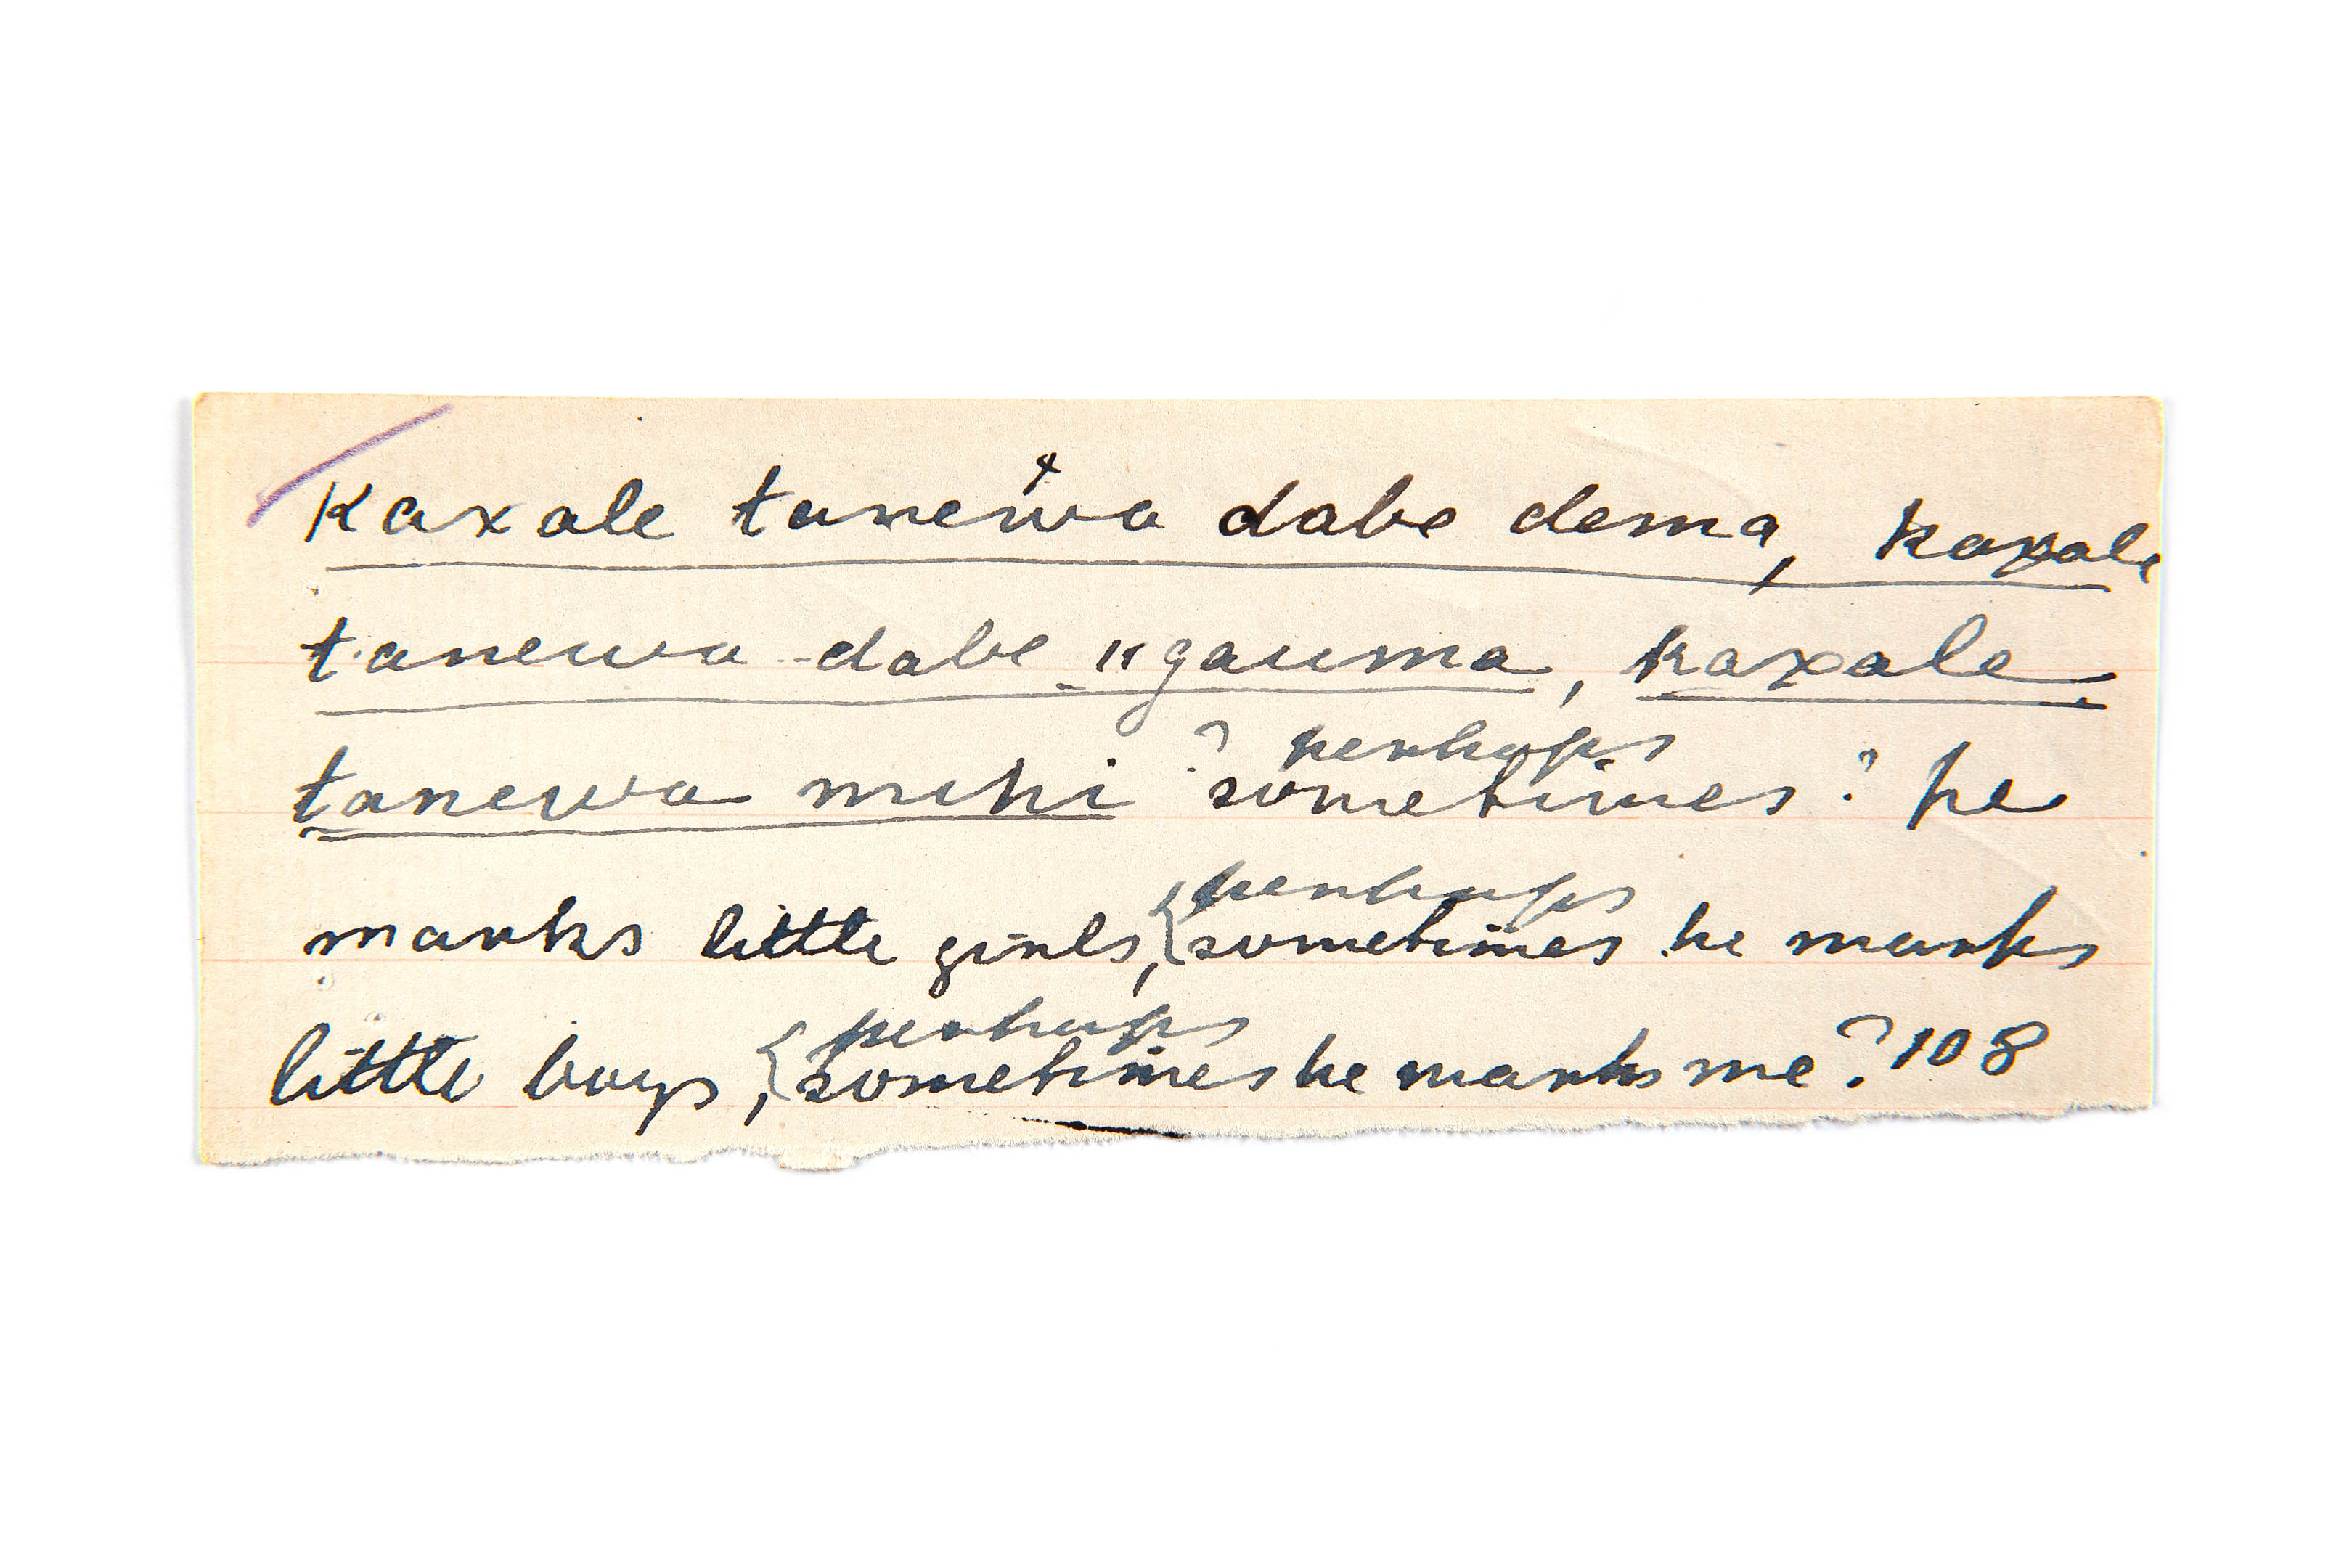 Kaxale tanewa dabe dema, kaxale
tanewa dabe ngauma, kaxale
tanewa mihi ? perhaps sometimes? he
marks little girls, { perhaps sometimes he marks
little boys, { perhaps sometimes he marks me? 108